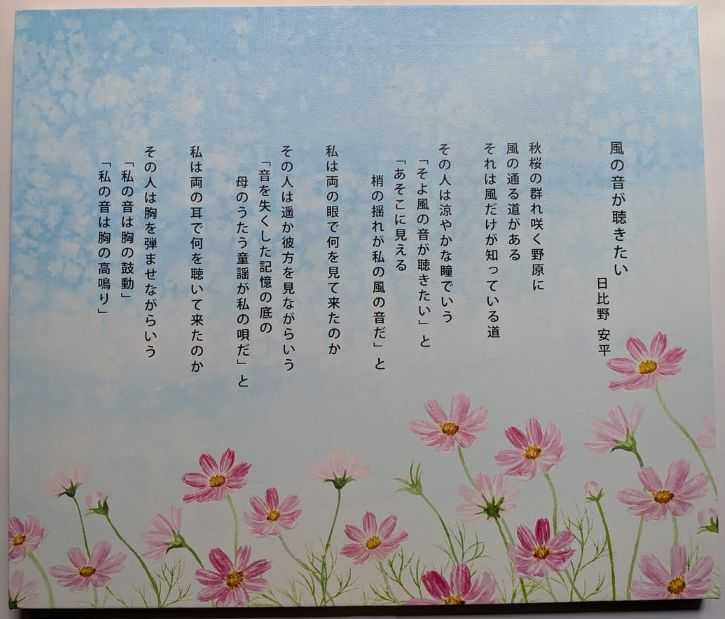 風の音が聴きたい
日比野 安平
秋桜の群れ咲く野原に
風の通る道がある
それは風だけが知っている道
その人は涼やかな瞳でいう
「そよ風の音が聴きたい」と
「あそこに見える
梢の揺れが私の風の音だ」と
私は両の眼で何を見て来たのか
その人は遥か彼方を見ながらいう
「音を失くした記憶の底の
母のうたう童謡が私の唄だ」と
私は両の耳で何を聴いて来たのか
その人は胸を弾ませながらいう
「私の音は胸の鼓動」
「私の音は胸の高鳴り」